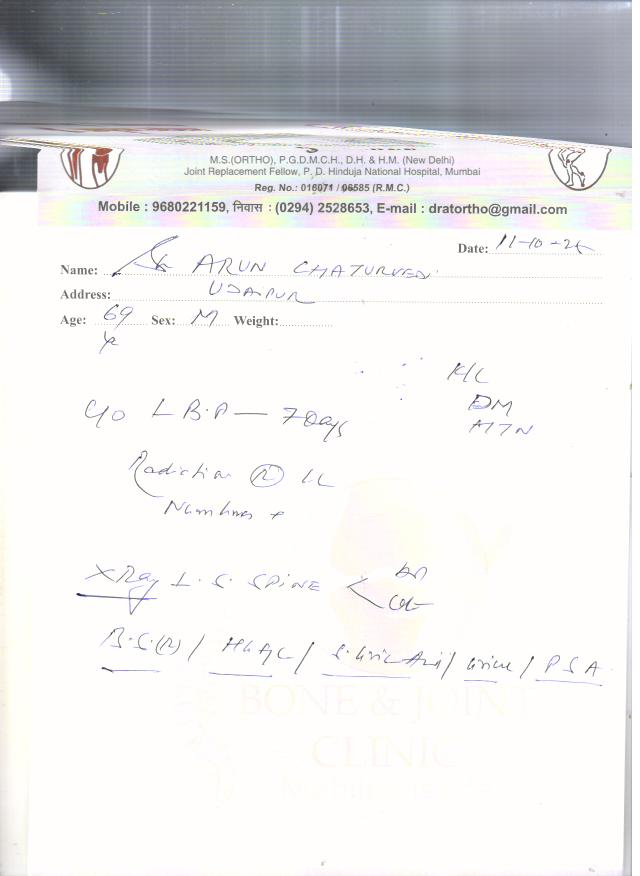 M.S.(ORTHO), P.G.D.M.C.H., D.H. & H.M. (New Delhi)
Joint Replacement Fellow, P. D. Hinduja National Hospital, Mumbai
Reg. No.: 016071 / 06585 (R.M.C.)
Mobile : 9680221159, निवास : (0294) 2528653, E-mail : dratortho@gmail.com
Date: 11-10-25
Name: ARUN CHATURVEDI
Address: UDAIPUR
Age: 69 Sex: M Weight:
K/C
DM
HTN
C/O L B.P — 7 Days
Radiation (R) LL
Numbness +
X Ray L.S. SPINE < AP
Lat
B.S.(R) / HbA1C / S. Uric Acid / Urine / P S A
BONE & JOINT
CLINIC